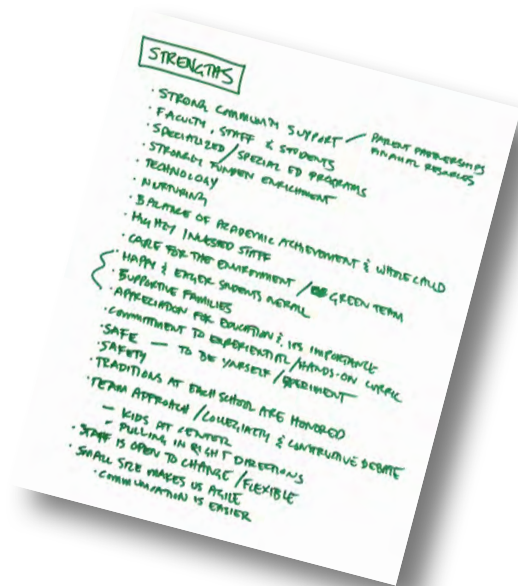 STRENGTHS
· STRONG COMMUNITY SUPPORT — PARENT PARTNERSHIPS
FINANCIAL RESOURCES
· FACULTY, STAFF & STUDENTS
· SPECIALIZED/SPECIAL ED PROGRAMS
· STRONGLY FUNDED ENRICHMENT
· TECHNOLOGY
· NURTURING
· BALANCE OF ACADEMIC ACHIEVEMENT & WHOLE CHILD
· HIGHLY INVESTED STAFF
· CARE FOR THE ENVIRONMENT / GREEN TEAM
· HAPPY & EAGER STUDENTS OVERALL
· SUPPORTIVE FAMILIES
· APPRECIATION FOR EDUCATION & ITS IMPORTANCE
· COMMITTMENT TO EXPERIENTIAL/HANDS-ON CURRIC
· SAFE — TO BE YOURSELF/EXPERIMENT
· SAFETY
· TRADITIONS AT EACH SCHOOL ARE HONORED
· TEAM APPROACH / & CONSTRUCTIVE DEBATE
— KIDS AT CENTER
— PULLING IN RIGHT DIRECTIONS
· STAFF IS OPEN TO CHANGE/FLEXIBLE
· SMALL SIZE MAKES US AGILE
· COMMUNICATION IS EASIER